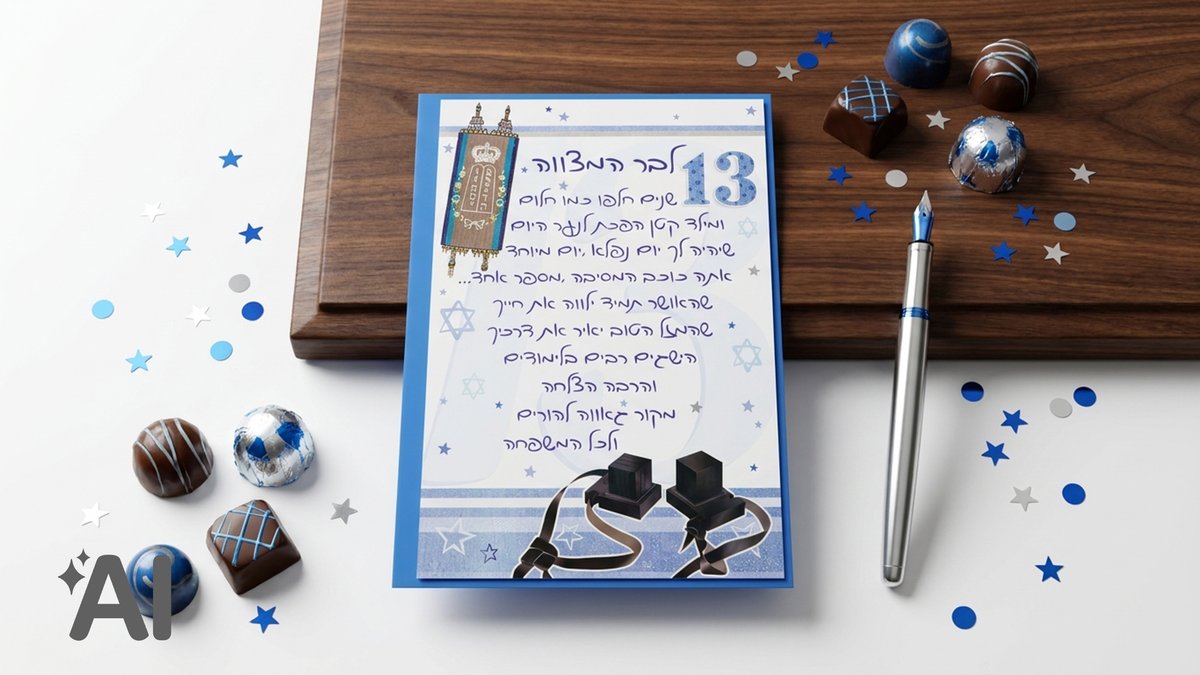 לבר המצווה 13
שנים חלפו כמו חלום
ומילד קטן הפכת לנער היום
שיהיה לך יום נפלא, יום מיוחד
אתה כוכב המסיבה, מספר אחד...
שהאושר תמיד ילווה את חייך
שהמזל הטוב יאיר את דרכיך
הישגים רבים בלימודים
והרבה הצלחה
מקור גאווה להורים
ולכל המשפחה
AI